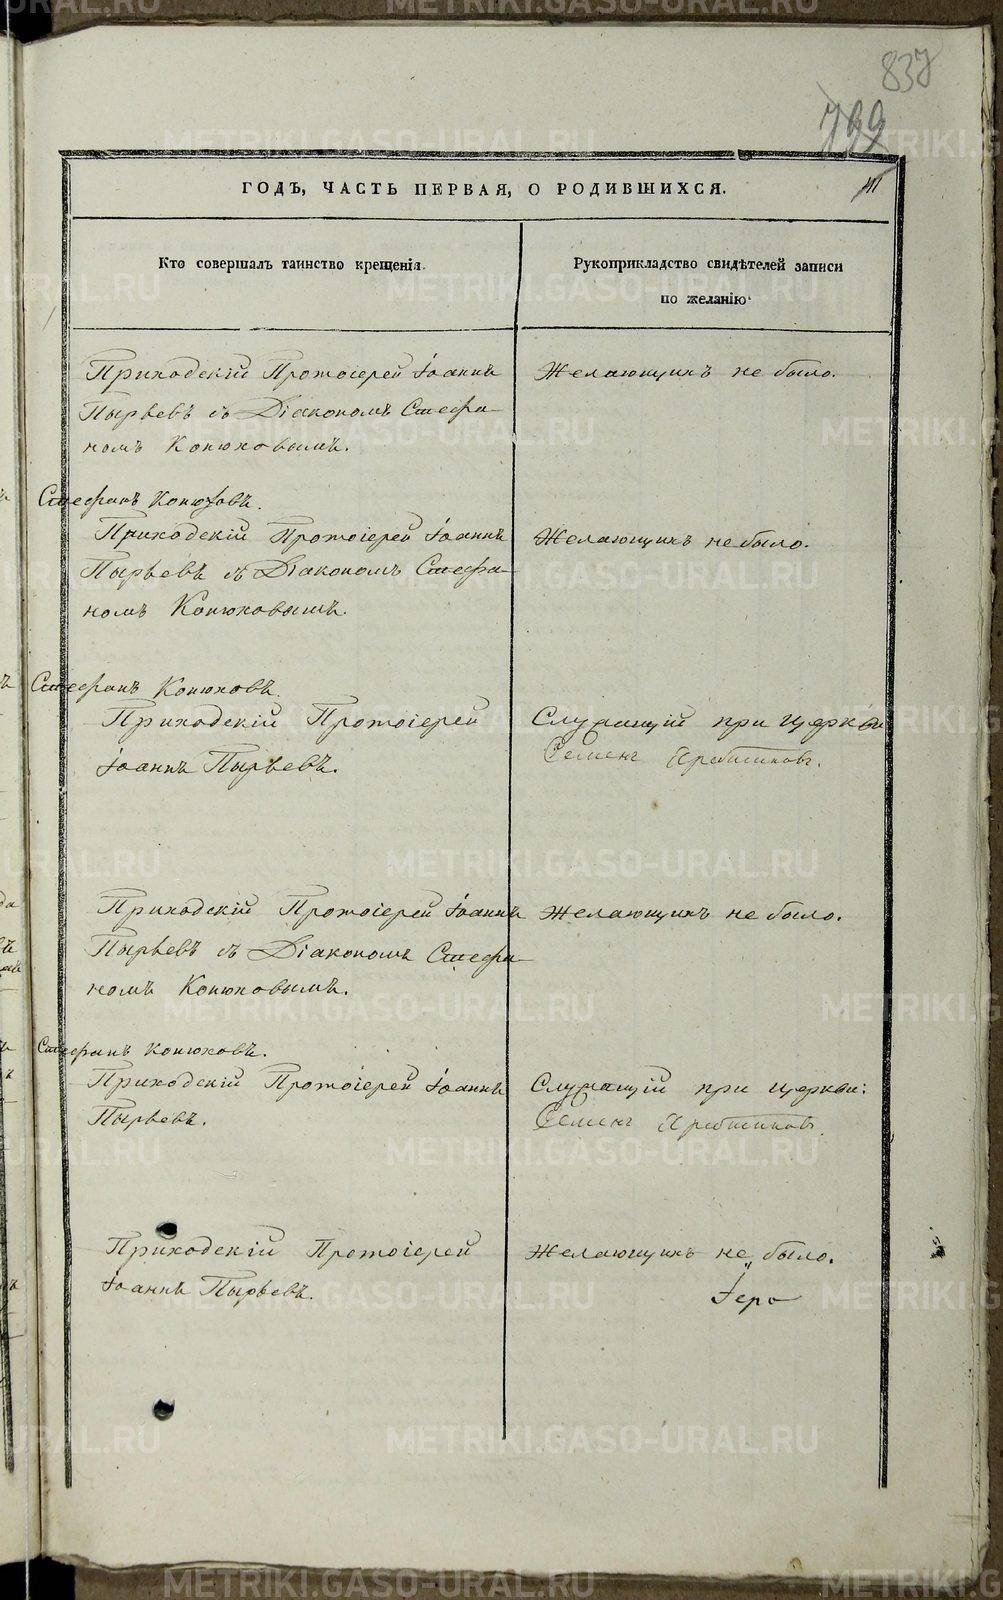 837
799
ГОДЪ, ЧАСТЬ ПЕРВАЯ, О РОДИВШИХСЯ.
Кто совершалъ таинство крещенія.
Рукоприкладство свидѣтелей записи
по желанію.
Приходскій Протоіерей Іоаннъ
Пырьевъ съ Діакономъ Стефа-
номъ Конюховымъ.
Желающихъ не было.
Стефанъ Конюховъ.
Приходскій Протоіерей Іоаннъ
Пырьевъ съ Діакономъ Стефа-
номъ Конюховымъ.
Желающихъ не было.
Стефанъ Конюховъ.
Приходскій Протоіерей
Іоаннъ Пырьевъ.
Служащій при церкви
Семенъ
Приходскій Протоіерей Іоаннъ
Пырьевъ съ Діакономъ Стефа-
номъ Конюховымъ.
Желающихъ не было.
Стефанъ Конюховъ.
Приходскій Протоіерей Іоаннъ
Пырьевъ.
Служащій при церкви:
Семенъ
Приходскій Протоіерей
Іоаннъ Пырьевъ.
Желающихъ не было.
Іеро
METRIKI.GASO-URAL.RU